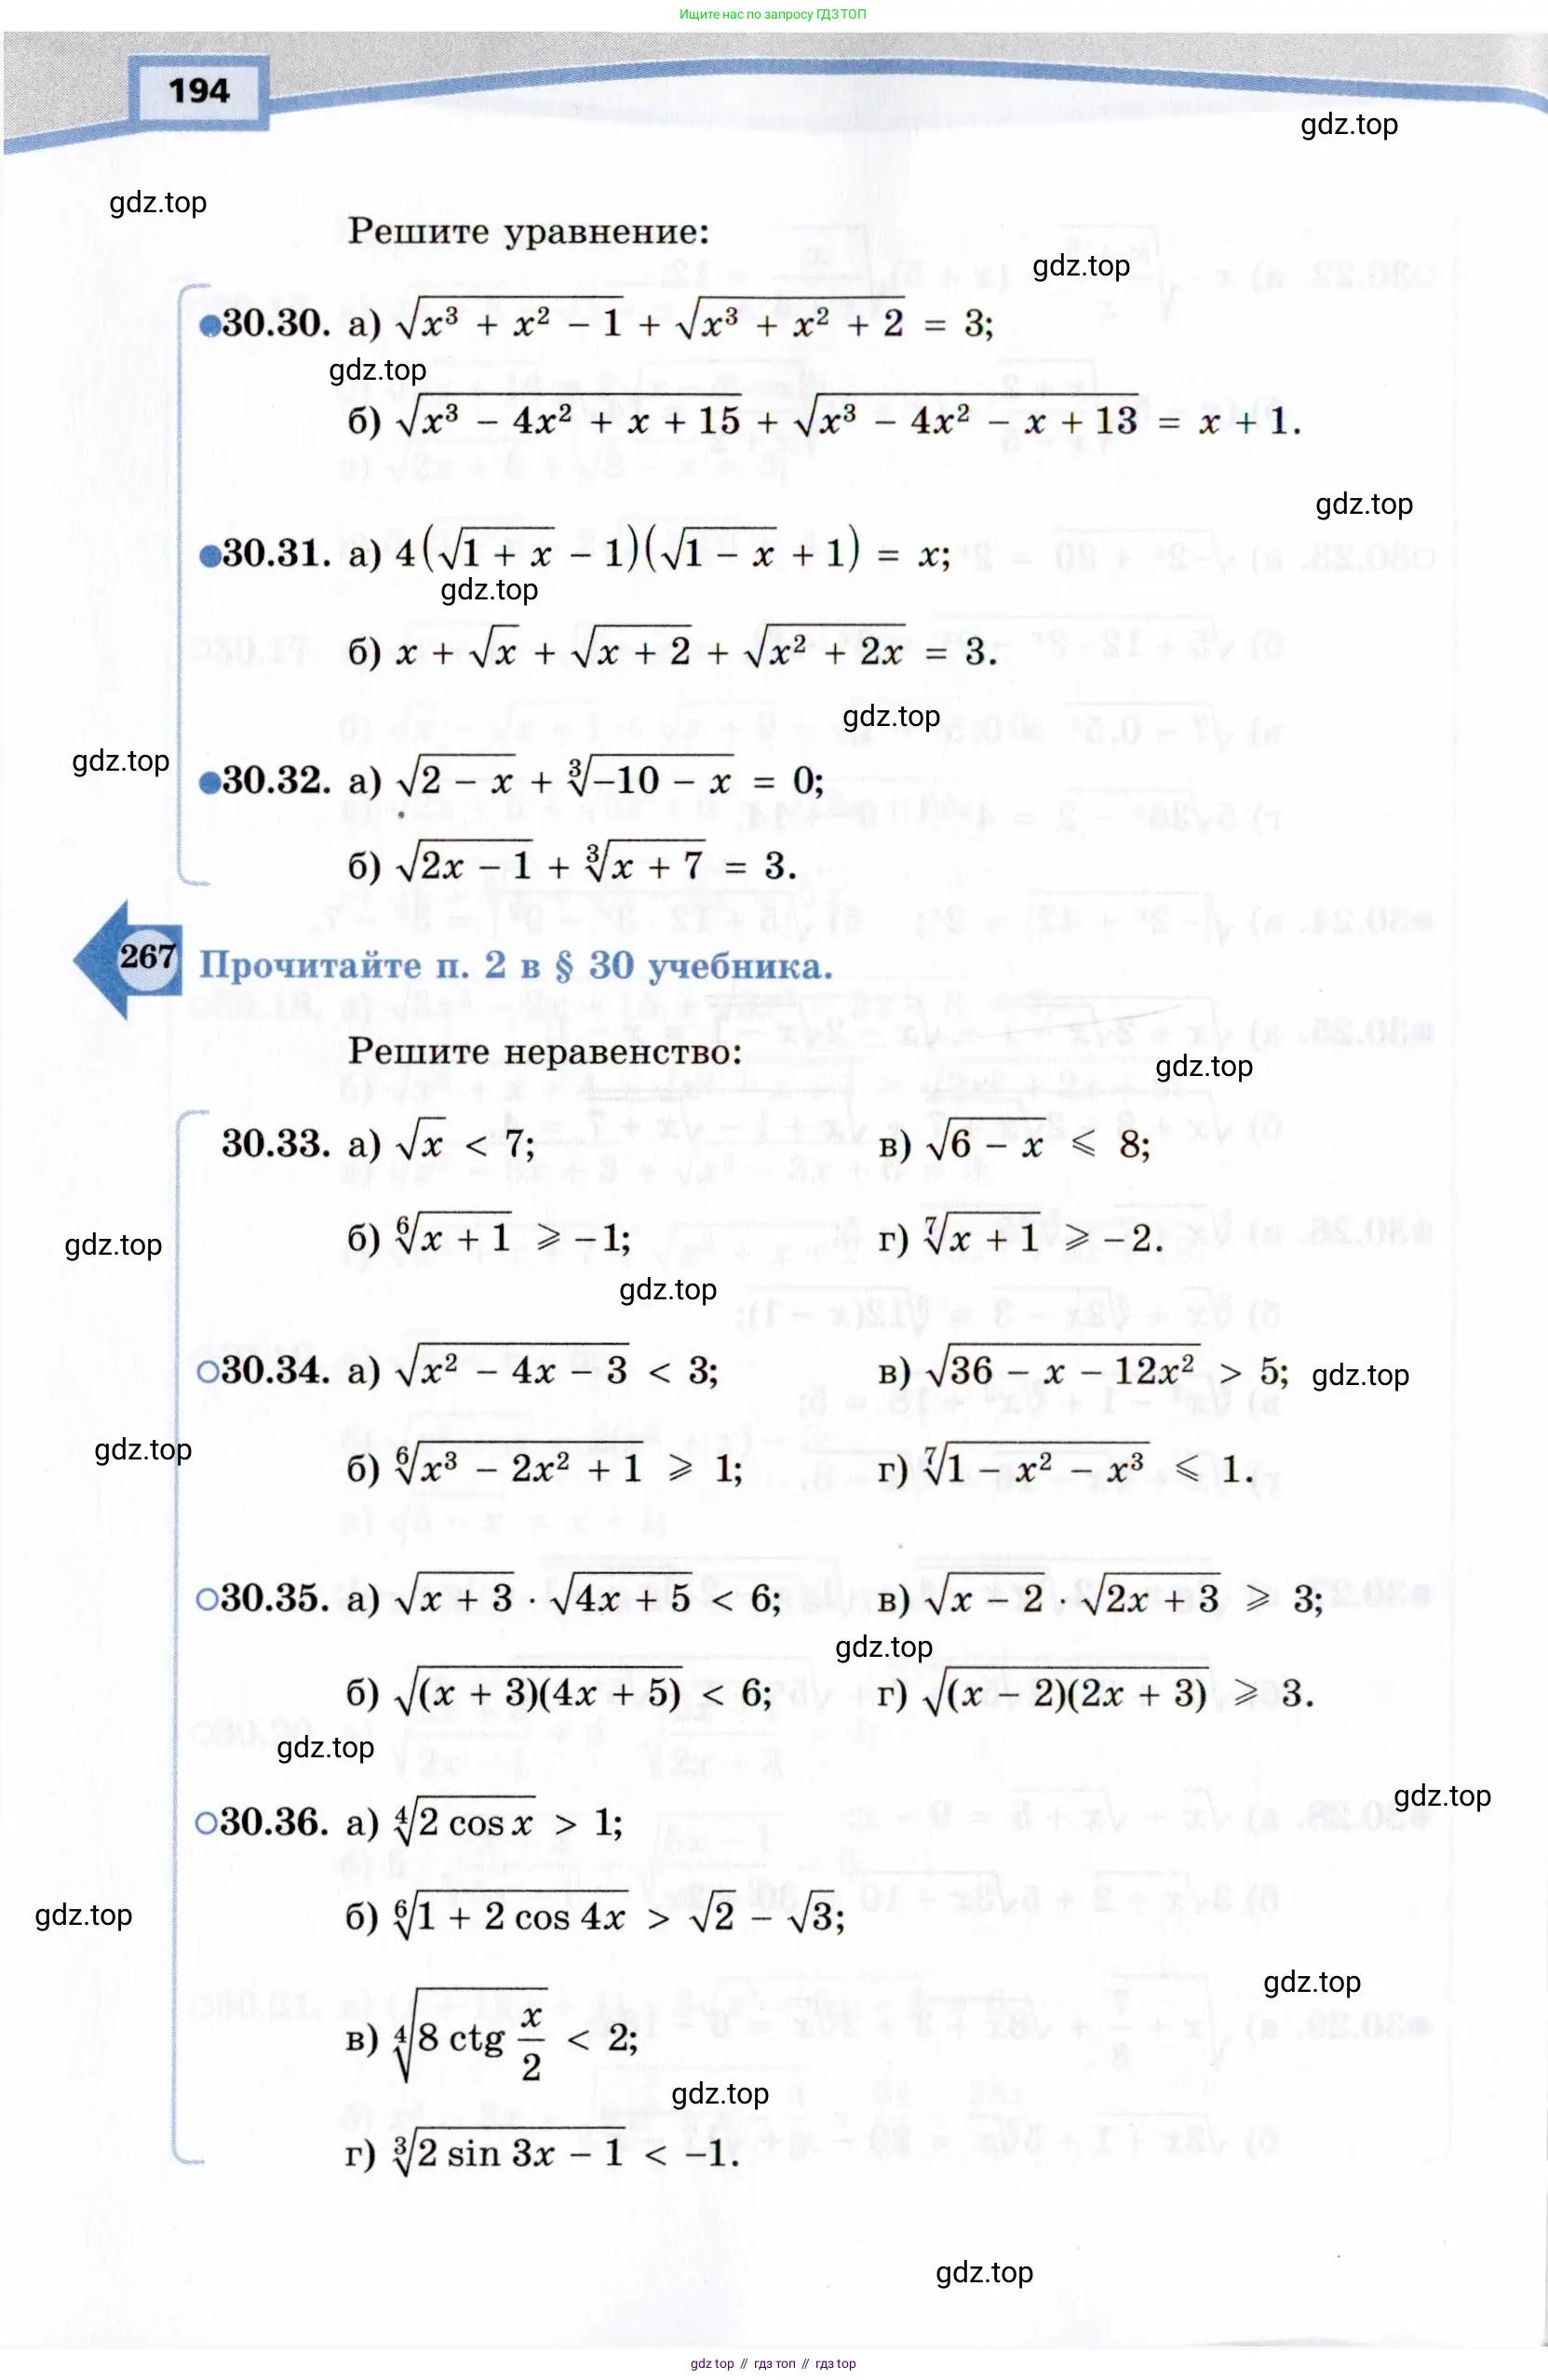 Ищите нас по запросу ГДЗ ТОП
194
gdz.top
gdz.top
Решите уравнение:
gdz.top
30.30. а) √(x³ + x² − 1) + √(x³ + x² + 2) = 3;
gdz.top
б) √(x³ − 4x² + x + 15) + √(x³ − 4x² − x + 13) = x + 1.
gdz.top
30.31. а) 4(√(1 + x) − 1)(√(1 − x) + 1) = x;
gdz.top
б) x + √x + √(x + 2) + √(x² + 2x) = 3.
gdz.top
gdz.top
30.32. а) √(2 − x) + ∛(−10 − x) = 0;
б) √(2x − 1) + ∛(x + 7) = 3.
267 Прочитайте п. 2 в § 30 учебника.
Решите неравенство:
gdz.top
30.33. а) √x < 7; в) √(6 − x) ⩽ 8;
б) ⁶√(x + 1) ⩾ −1; г) ⁷√(x + 1) ⩾ −2.
gdz.top
gdz.top
30.34. а) √(x² − 4x − 3) < 3; в) √(36 − x − 12x²) > 5; gdz.top
gdz.top
б) ⁶√(x³ − 2x² + 1) ⩾ 1; г) ⁷√(1 − x² − x³) ⩽ 1.
30.35. а) √(x + 3) · √(4x + 5) < 6; в) √(x − 2) · √(2x + 3) ⩾ 3;
gdz.top
б) √((x + 3)(4x + 5)) < 6; г) √((x − 2)(2x + 3)) ⩾ 3.
gdz.top
gdz.top
30.36. а) ⁴√(2 cos x) > 1;
б) ⁶√(1 + 2 cos 4x) > √2 − √3;
gdz.top
gdz.top
в) ⁴√(8 ctg x/2) < 2;
gdz.top
г) ∛(2 sin 3x − 1) < −1.
gdz.top
gdz top // гдз топ // гдз top